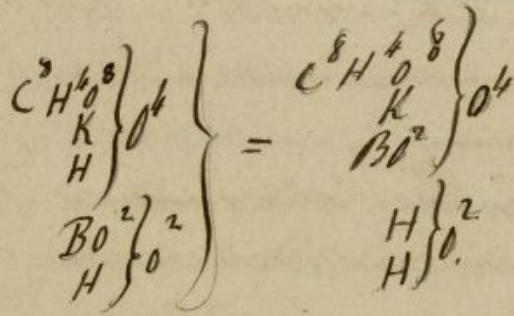 C⁸H⁴O⁸
K } O⁴
H
BO²
H } O²
=
C⁸H⁴O⁸
K } O⁴
BO²
H
H } O².